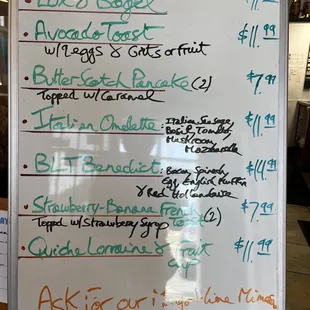 Lox & Bagel $11.99
Avocado Toast $11.99
w/2 eggs & Grits or Fruit
ButterScotch Pancake (2) $7.99
Topped w/ Caramel
Italian Omelette: Italian Sausage, $11.99
Basil, Tomato,
Mushroom,
Mozzarella
BLT Benedict: Bacon, Spinach $14.99
Egg, English Muffin
& Red Hollandaise
Strawberry-Banana French (2) $7.99
Topped w/ Strawberry Syrup Toast
Quiche Lorraine & Fruit $11.99
Cup
Ask for our